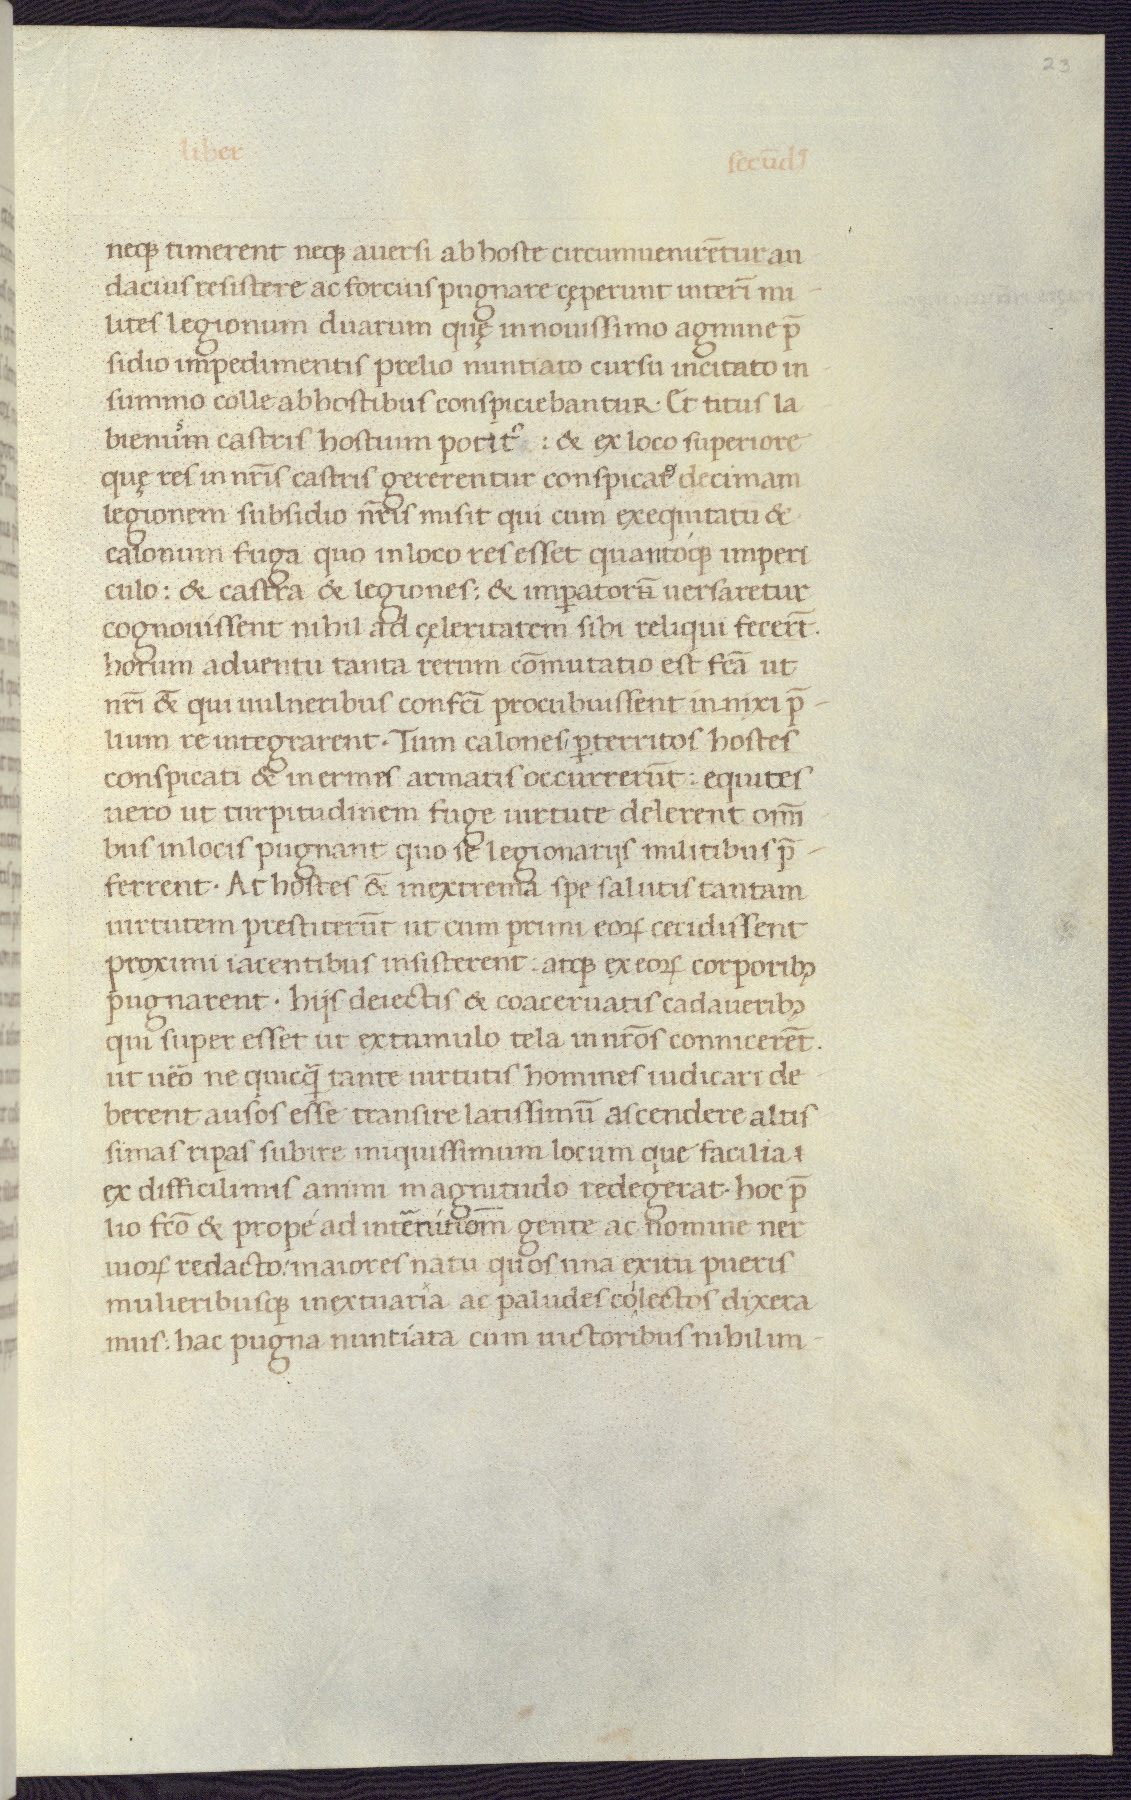 23
liber secūdꝰ
neqꝫ timerent neqꝫ auersi ab hoste circumuenirētur au
dacius resistere ac forcius pugnare cęperunt interī mi
lites legionum duarum quę in nouissimo agmine p̄
sidio impedimentis prelio nuntiato cursu incitato in
summo colle ab hostibus conspiciebantur. Et titus la
bienum castris hostium potitꝰ : & ex loco superiore
quę res in nr̄is castris gererentur conspicatꝰ decimam
legionem subsidio nr̄is misit qui cum ex equitatu &
calonum fuga quo in loco res esset quantoqꝫ in peri
culo : & castra & legiones : & imꝑatorū uersaretur
cognouissent nihil ad cęleritatem sibi reliqui fecert̄.
horum aduentu tanta rerum cōmutatio est fc̄a ut
nr̄i &̄ qui uulneribus confcī procubuissent in nixi p̄
lium re integrarent. Tum calones ꝑterritos hostes
conspicati & inermes armatis occurrerūt : equites
uero ut turpitudinem fuge uirtute delerent om̄i
bus in locis pugnant quo se legionarijs militibus p̄
ferrent. At hostes &̄ in extrema spe salutis tantam
uirtutem prestiterūt ut cum primi eoꝝ cecidissent
proximi iacentibus insisterent : atqꝫ ex eoꝝ corporibꝫ
pugnarent. hijs deiectis & coaceruatis cadaueribꝫ
qui super esset ut ex tumulo tela in nr̄os conniceren̄t.
ut uēo ne quicq̄ tante uirtutis homines iudicari de
berent ausos esse transire latissimū ascendere altis
simas ripas subire iniquissimum locum que facilia
ex difficilimis animi magnitudo redegerat. hoc p̄
lio fc̄o & prope ad intērnitiom̄ gente ac nomine ner
uioꝝ redacto : maiores natu quos una exitu pueris
mulieribusqꝫ in extuaria ac paludes colectos dixera
mus : hac pugna nuntiata cum uictoribus nihil im